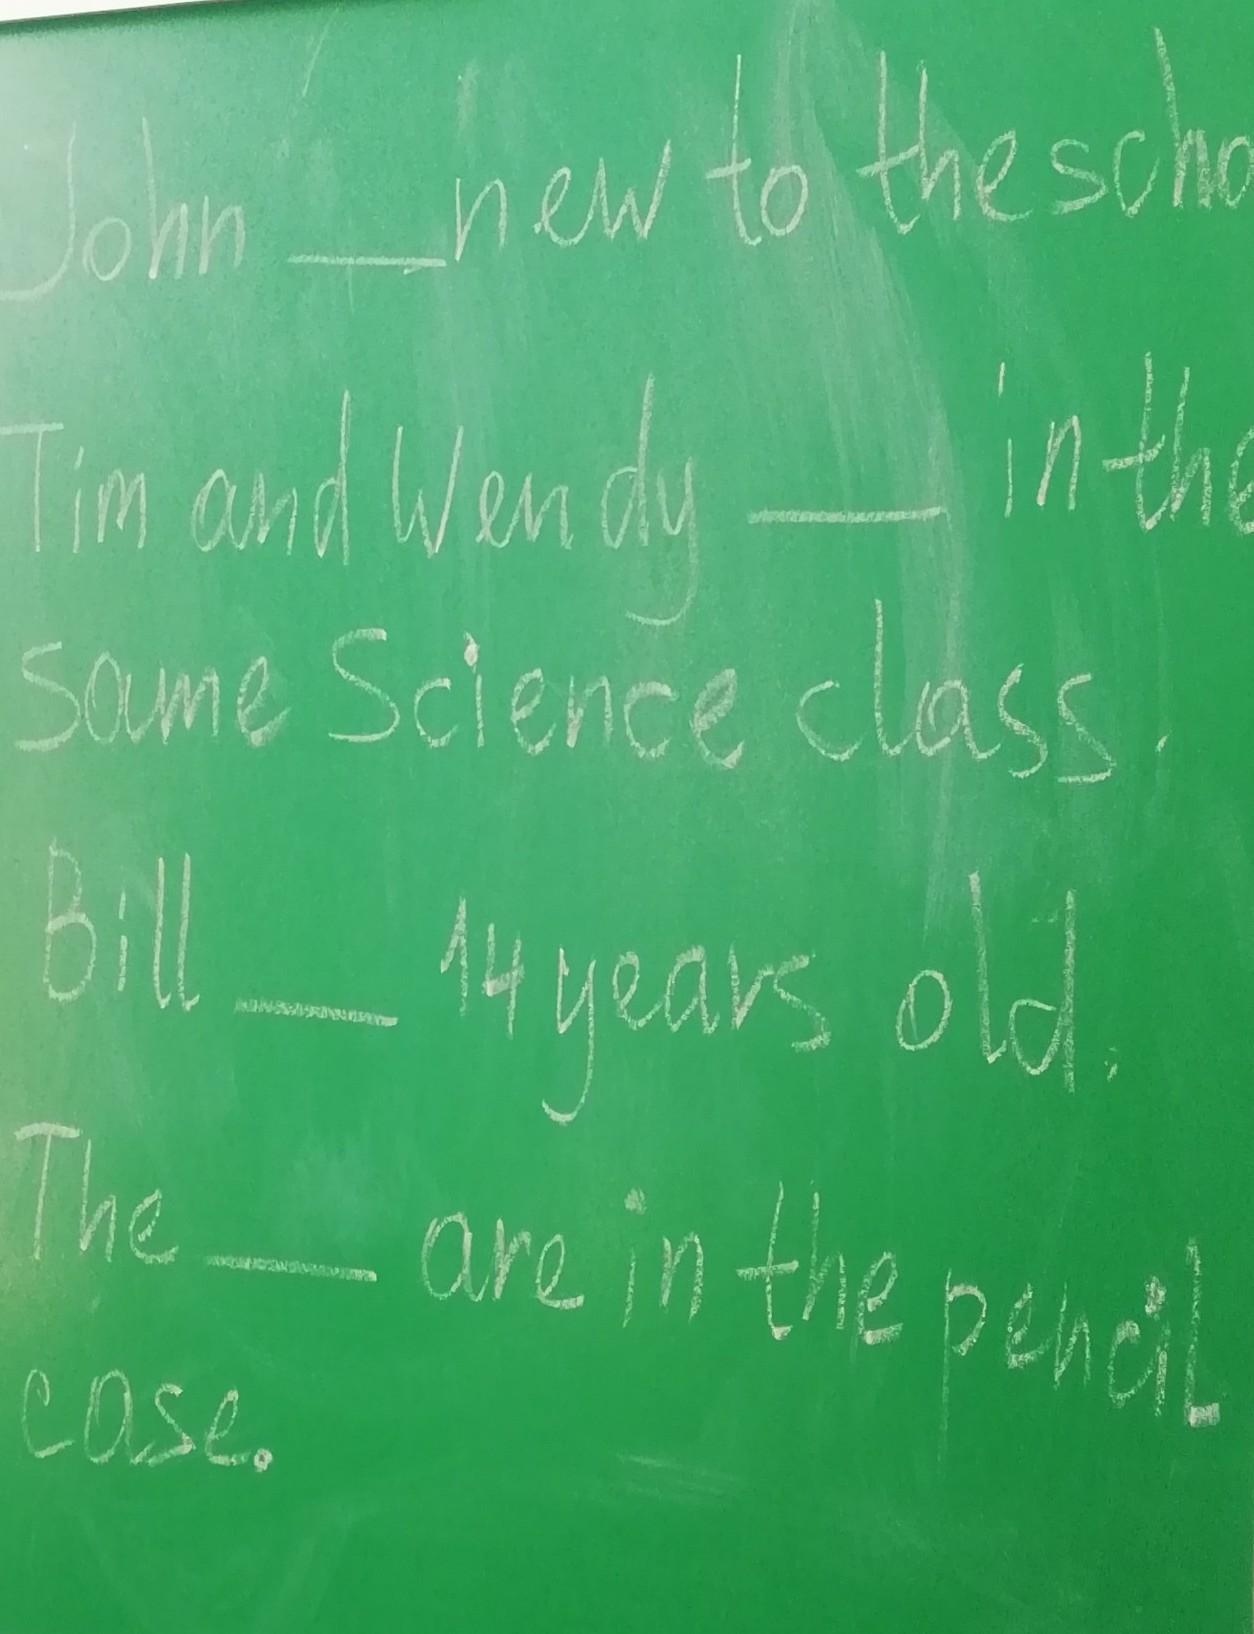 John ___ new to the scho
Tim and Wendy ___ in the
same Science class.
Bill ___ 14 years old.
The ___ are in the pencil
case.